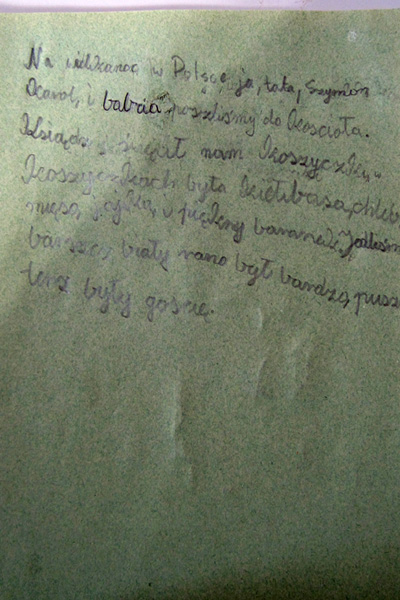 Na wielkanoc w Polsce, ja, tata, Szymon,
Karol, i babcia poszliśmy do kościoła.
Ksiądz święcił nam koszyczki, w
koszyczkach była kiełbasa, chleb
mięso, jajka, i piękny baranek, Jadłem
barszcz, biały rano był bardzo,
były goście.